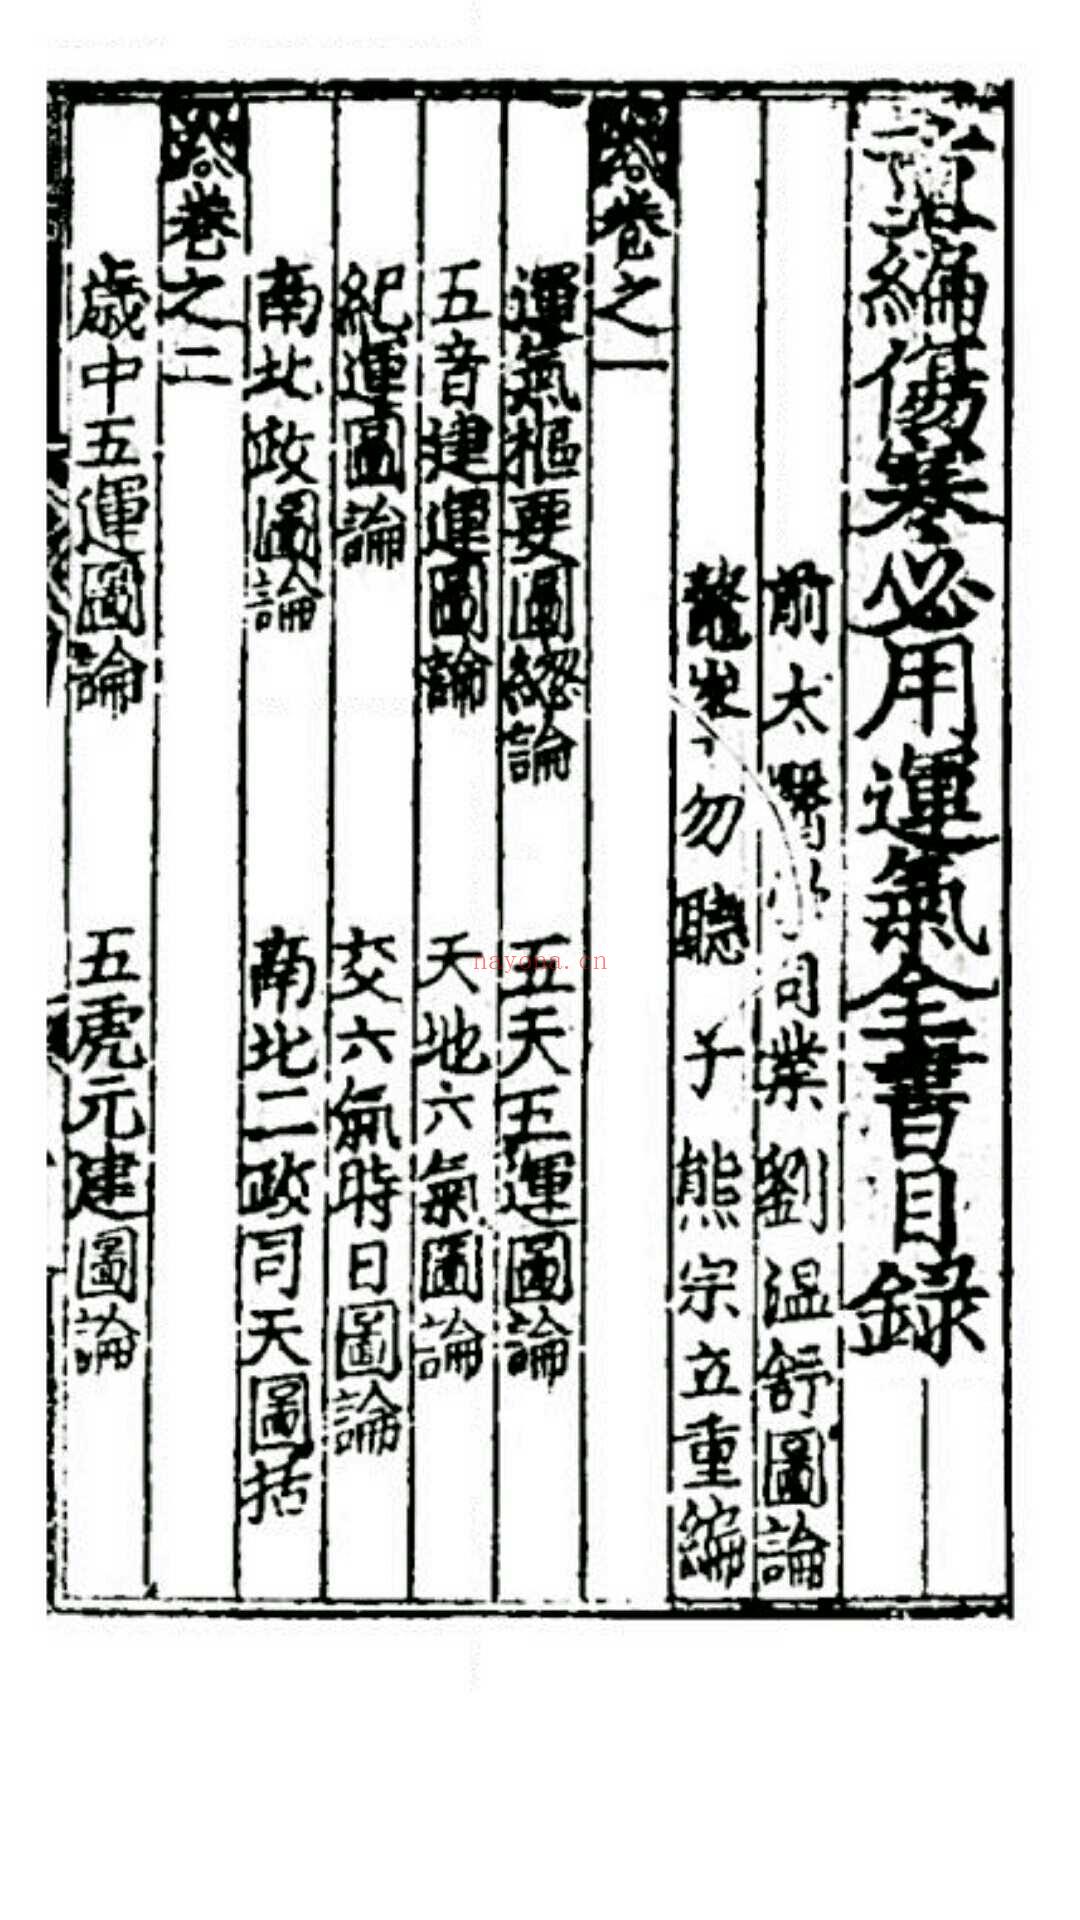 編傷寒必用運氣全書目錄
前太醫 司業劉溫舒圖論
鼇 勿聽子熊宗立重編
卷之一
運氣樞要圖總論 五天五運圖論
五音建運圖論 天地六氣圖論
紀運圖論 交六氣時日圖論
南北政圖論 南北二政司天圖括
卷之二
歲中五運圖論 五虎元建圖論
nayona.cn